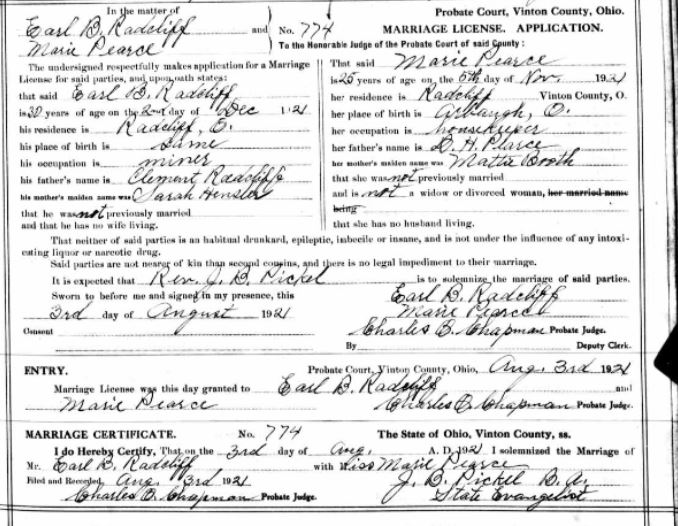 In the matter of
Earl B. Radcliff and
Marie Pearce
No. 774
Probate Court, Vinton County, Ohio.
MARRIAGE LICENSE. APPLICATION.
To the Honorable Judge of the Probate Court of said County:
The undersigned respectfully makes application for a Marriage
License for said parties, and upon oath states:
that said Earl B. Radcliff
is 30 years of age on the 2nd day of Dec 1921
his residence is Radcliff, O.
his place of birth is same
his occupation is miner
his father's name is Clement Radcliff
his mother's maiden name was Sarah Hensler
that he was not previously married
and that he has no wife living.
That said Marie Pearce
is 25 years of age on the 5th day of Nov. 1921
her residence is Radcliff Vinton County, O.
her place of birth is Arbaugh, O.
her occupation is housekeeper
her father's name is D. H. Pearce
her mother's maiden name was Matta Booth
that she was not previously married
and is not a widow or divorced woman, her married name
being
that she has no husband living.
That neither of said parties is an habitual drunkard, epileptic, imbecile or insane, and is not under the influence of any intoxi-
cating liquor or narcotic drug.
Said parties are not nearer of kin than second cousins, and there is no legal impediment to their marriage.
It is expected that Rev. J. B. Pickel is to solemnize the marriage of said parties.
Sworn to before me and signed in my presence, this
3rd day of August 1921
Consent
Earl B. Radcliff
Marie Pearce
Charles B. Chapman Probate Judge.
By Deputy Clerk.
ENTRY. Probate Court, Vinton County, Ohio, Aug. 3rd 1921
Marriage License was this day granted to Earl B. Radcliff and
Marie Pearce Charles B. Chapman Probate Judge.
MARRIAGE CERTIFICATE. No. 774 The State of Ohio, Vinton County, ss.
I do Hereby Certify, That on the 3rd day of Aug. A. D. 1921 I solemnized the Marriage of
Mr. Earl B. Radcliff with Miss Marie Pearce
Filed and Recorded Aug. 3rd 1921 J. B. Pickel B. A.
Charles B. Chapman Probate Judge. State Evangelist